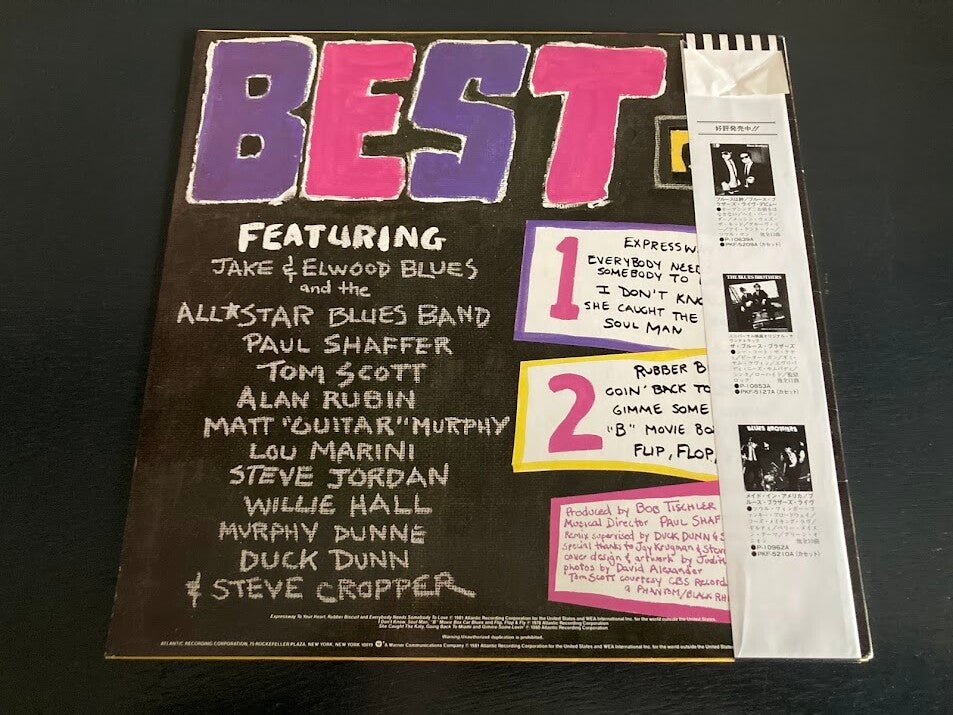 BEST
FEATURING
JAKE & ELWOOD BLUES
and the
ALL★STAR BLUES BAND
PAUL SHAFFER
TOM SCOTT
ALAN RUBIN
MATT "GUITAR" MURPHY
LOU MARINI
STEVE JORDAN
WILLIE HALL
MURPHY DUNNE
DUCK DUNN
& STEVE CROPPER
1
EXPRESSW
EVERYBODY NEE
SOMEBODY TO
I DON'T KN
SHE CAUGHT THE
SOUL MAN
2
RUBBER B
GOIN' BACK TO
GIMME SOME
"B" MOVIE BO
FLIP, FLOP,
Produced by BOB TISCHLER
Musical Director PAUL SHAF
Remix supervised by DUCK DUNN & S
special thanks to Jay Krugman & Stan
cover design & artwork by Judit
photos by David Alexander
Tom Scott courtesy CBS Record
a PHANTOM/BLACK RH
Expressway To Your Heart, Rubber Biscuit and Everybody Needs Somebody To Love © 1981 Atlantic Recording Corporation for the United States and WEA International Inc. for the world outside the United States.
I Don't Know, Soul Man, "B" Movie Box Car Blues and Flip, Flop & Fly © 1978 Atlantic Recording Corporation
She Caught The Katy, Going Back To Miami and Gimme Some Lovin' © 1980 Atlantic Recording Corporation
Warning: Unauthorized duplication is prohibited.
ATLANTIC RECORDING CORPORATION, 75 ROCKEFELLER PLAZA, NEW YORK, NEW YORK 10019 A Warner Communications Company © 1981 Atlantic Recording Corporation for the United States and WEA International Inc. for the world outside the United States
好評発売中!!
ブルースは絆/ブルース・ブ
ラザーズ・ライヴ・デビュー
●P-10639A
●PKF-5209A (カセット)
THE BLUES BROTHERS
ザ・ブルース・ブラザーズ
●P-10853A
●PKF-5127A (カセット)
BLUES BROTHERS
メイド・イン・アメリカ/ブ
ルース・ブラザーズ・ライヴ
●P-10962A
●PKF-5210A (カセット)